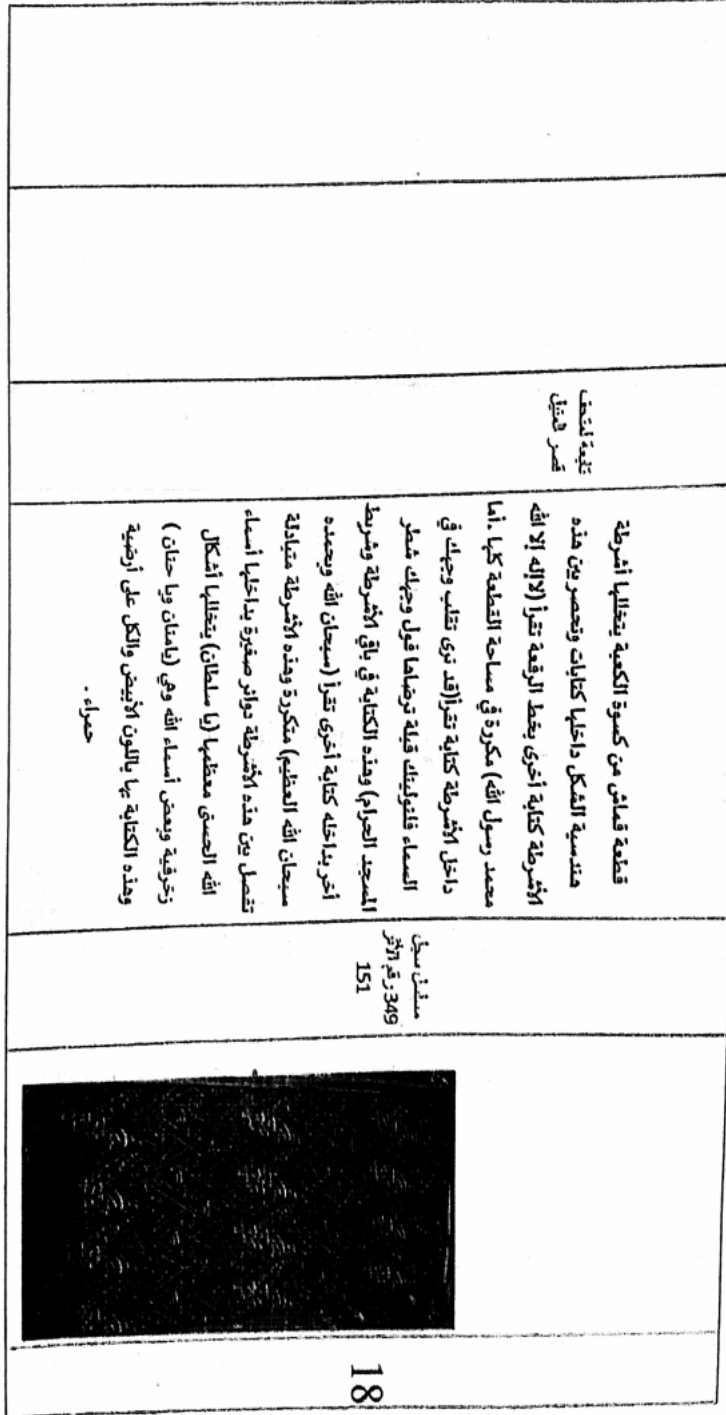 18
مسلسل سجل
349 رقم الأثر
151
قطعة قماش من كسوة الكعبة يتخللها أشرطة
هندسية الشكل داخلها كتابات وتحصر بين هذه
الأشرطة كتابة أخرى بخط الرقعة تقرأ (لاإله إلا الله
محمد رسول الله) مكررة في مساحة القطعة كلها .أما
داخل الأشرطة كتابة تقرأ(قد نرى تقلب وجهك في
السماء فلنولينك قبلة ترضاها فول وجهك شطر
المسجد الحرام) وهذه الكتابة في باقي الأشرطة وشريط
أخر بداخله كتابة أخرى تقرأ (سبحان الله وبحمده
سبحان الله العظيم) متكررة وهذه الأشرطة متبادلة
تفصل بين هذه الأشرطة دوائر صغيرة بداخلها أسماء
الله الحسنى معظمها (يا سلطان) يتخللها أشكال
زخرفية وبعض أسماء الله وهي (يامنان ويا حنان )
وهذه الكتابة بها باللون الأبيض والكل على أرضية
حمراء .
تابعة لمتحف
قصر المنيل